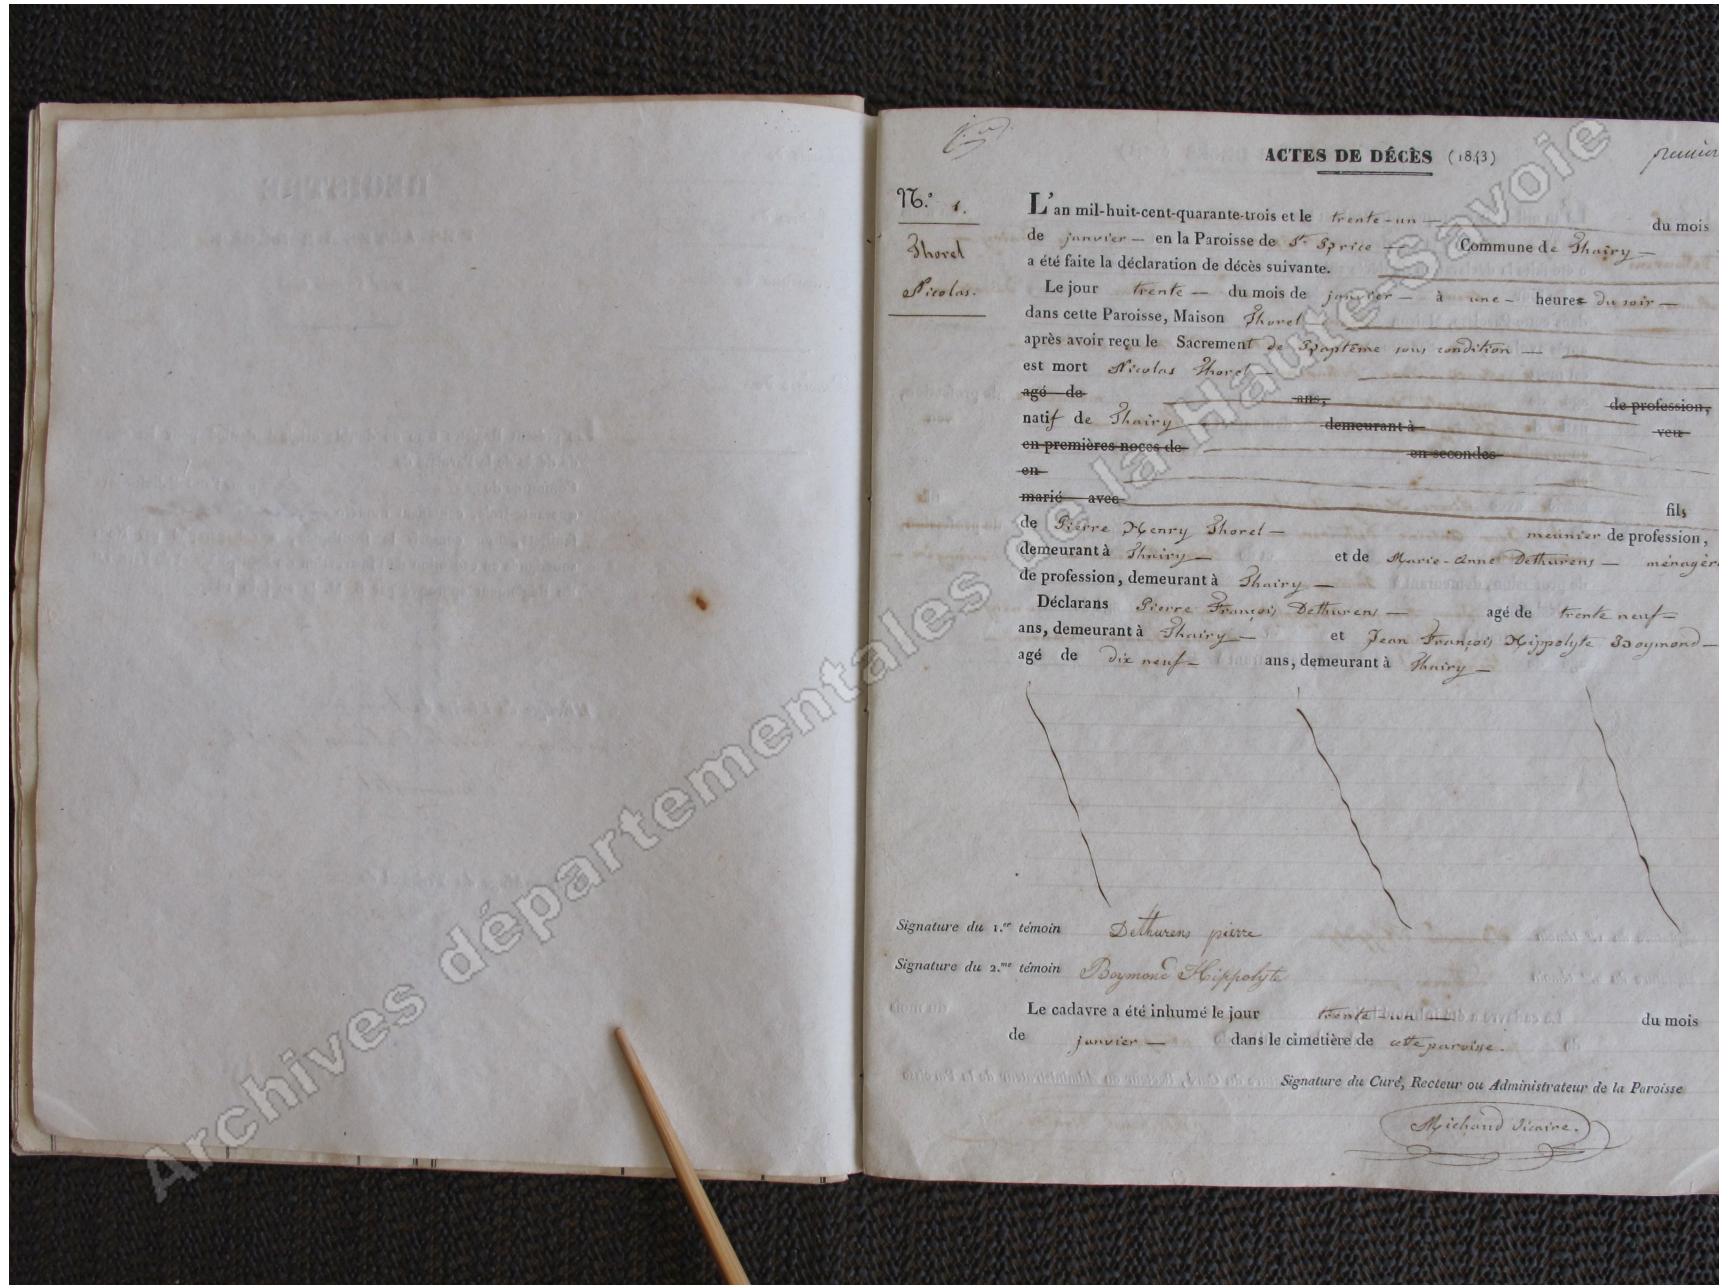 ACTES DE DÉCÈS (1843)
premier
N.° 1.
Thorel
Nicolas.
L'an mil-huit-cent-quarante-trois et le trente-un — du mois
de janvier — en la Paroisse de St Brice — Commune de Thairy —
a été faite la déclaration de décès suivante.
Le jour trente — du mois de janvier — à une — heures du soir —
dans cette Paroisse, Maison Thorel
après avoir reçu le Sacrement de Baptême sous condition —
est mort Nicolas Thorel —
agé de ans, de profession,
natif de Thairy demeurant à veu
en premières noces de en secondes
en
marié avec fils
de Pierre Henry Thorel — meunier de profession,
demeurant à Thairy — et de Marie-Anne Dethurens — ménagère
de profession, demeurant à Thairy —
Déclarans Pierre François Dethurens — agé de trente neuf —
ans, demeurant à Thairy — et Jean François Hippolyte Boymond —
agé de dix neuf — ans, demeurant à Thairy —
Signature du 1.er témoin Dethurens pierre
Signature du 2.me témoin Boymond Hippolyte
Le cadavre a été inhumé le jour trente-un — du mois
de janvier — dans le cimetière de cette paroisse.
Signature du Curé, Recteur ou Administrateur de la Paroisse
Michaud Vicaire.
Archives départementales de la Haute-Savoie